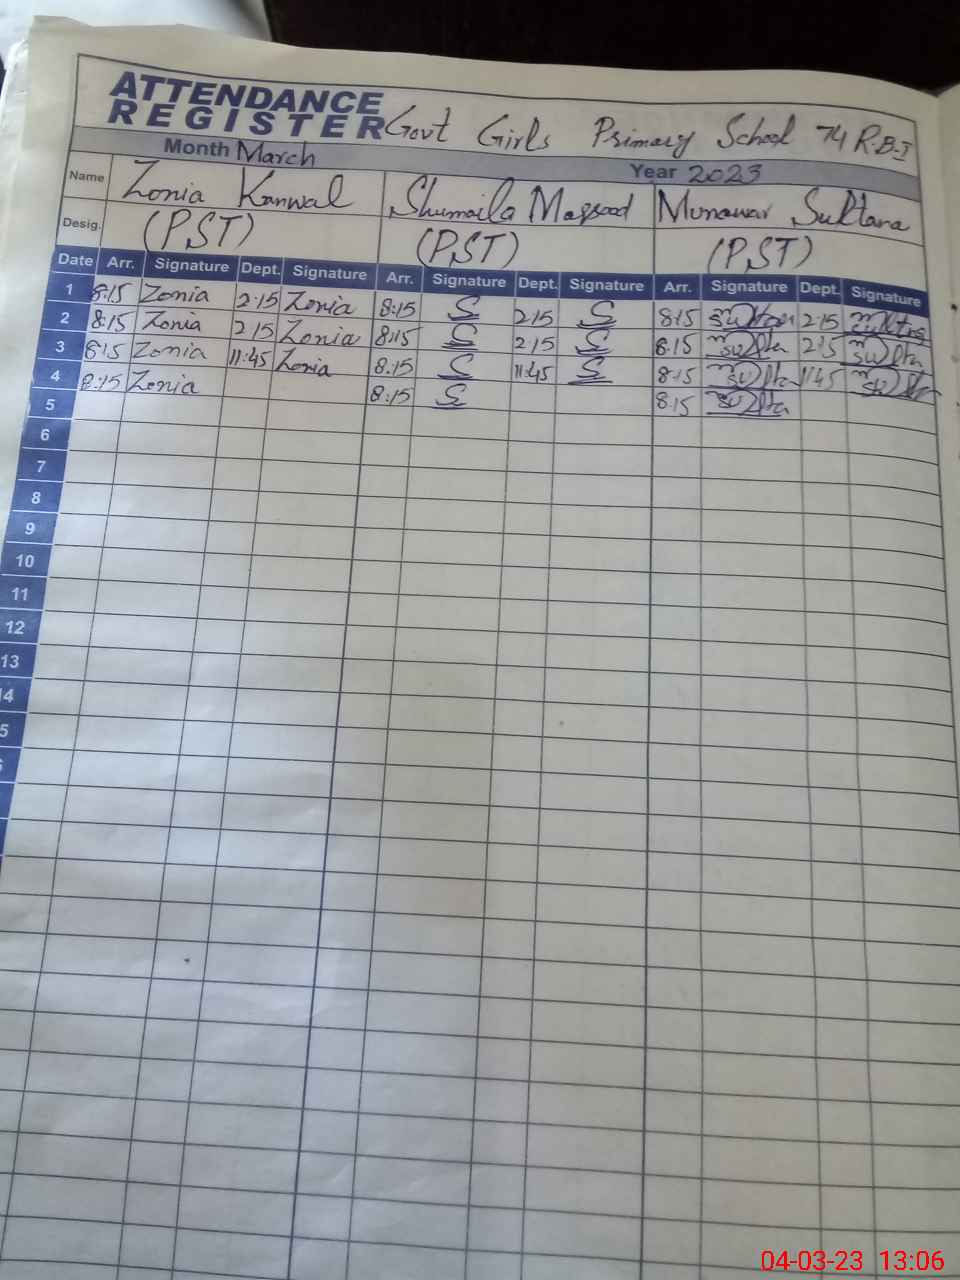 ATTENDANCE
REGISTER Govt Girls Primary School 74 R.B-I
Month March Year 2023
Name Zonia Kanwal Shumaila Maqsood Munawar Sultana
Desig. (PST) (PST) (PST)
Date Arr. Signature Dept. Signature Arr. Signature Dept. Signature Arr. Signature Dept. Signature
1 8:15 Zonia 2:15 Zonia 8:15 S 2:15 S 8:15 2:15
2 8:15 Zonia 2:15 Zonia 8:15 S 2:15 S 8:15 2:15
3 8:15 Zonia 11:45 Zonia 8:15 S 11:45 S 8:15 11:45
4 8:15 Zonia 8:15 S 8:15
5
6
7
8
9
10
11
12
13
14
5
04-03-23 13:06